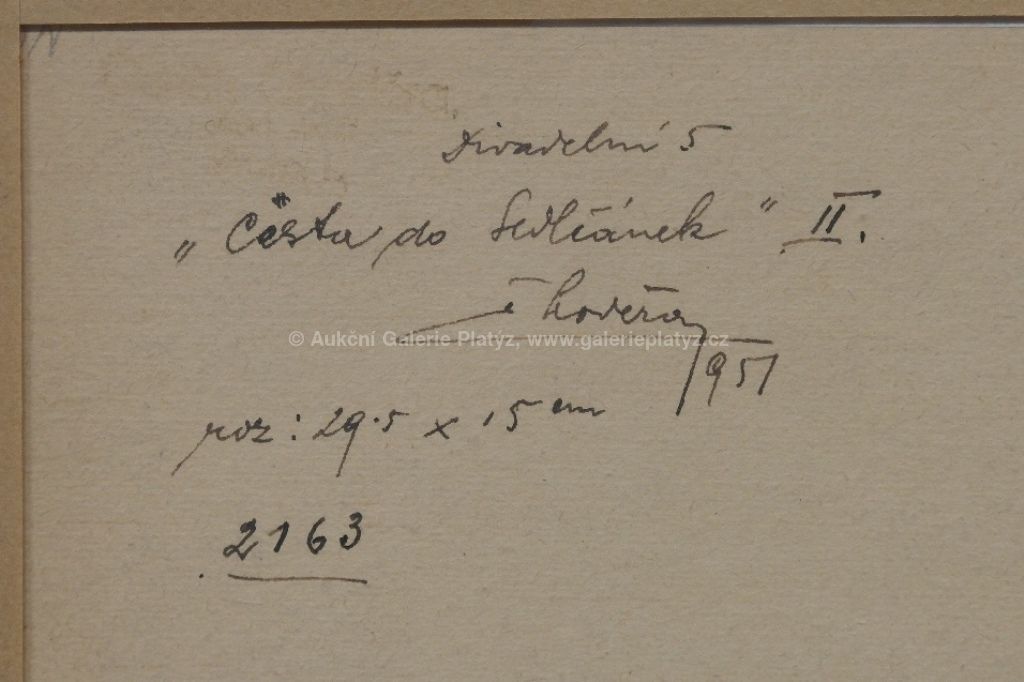 Divadelní 5
„Cesta do Sedlčánek" II.
Choděra
1951
roz: 29.5 x 15 cm
2163
© Aukční Galerie Platýz, www.galerieplatyz.cz